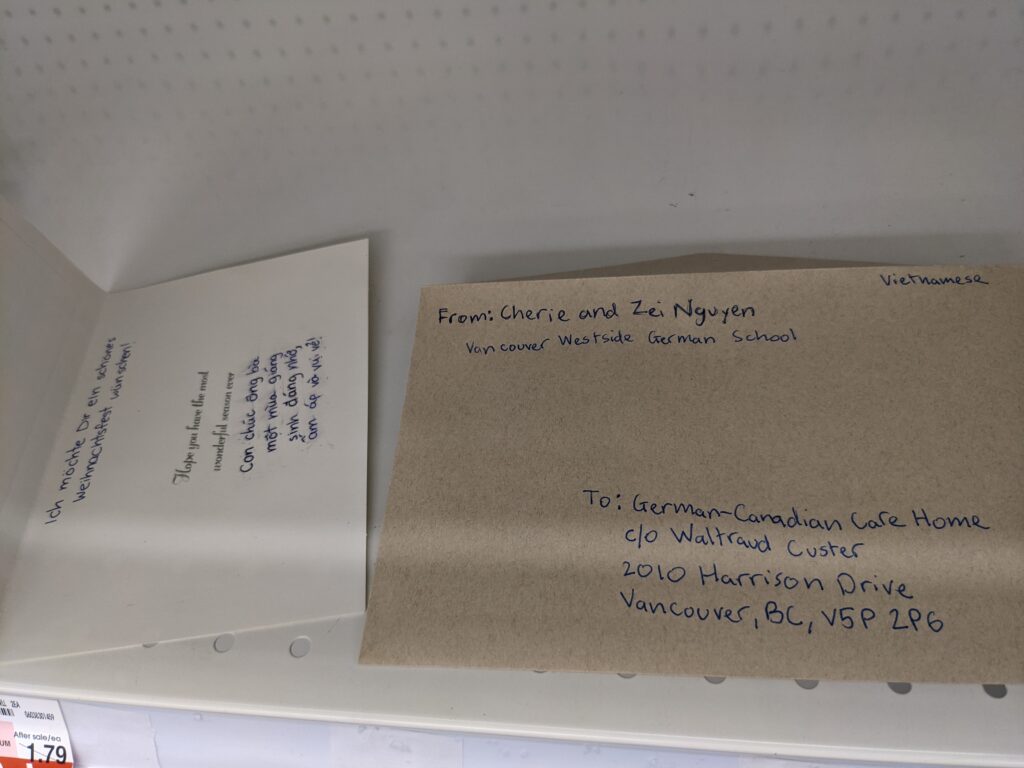 Ich möchte Dir ein schönes
Weihnachtsfest wünschen!
Hope you have the most
wonderful season ever
Con chúc ông bà
một mùa giáng
sinh đáng nhớ,
ấm áp và vui vẻ!
Vietnamese
From: Cherie and Zei Nguyen
Vancouver Westside German School
To: German-Canadian Care Home
c/o Waltraud Custer
2010 Harrison Drive
Vancouver, BC, V5P 2P6
2EA
After sale/ea
1.79